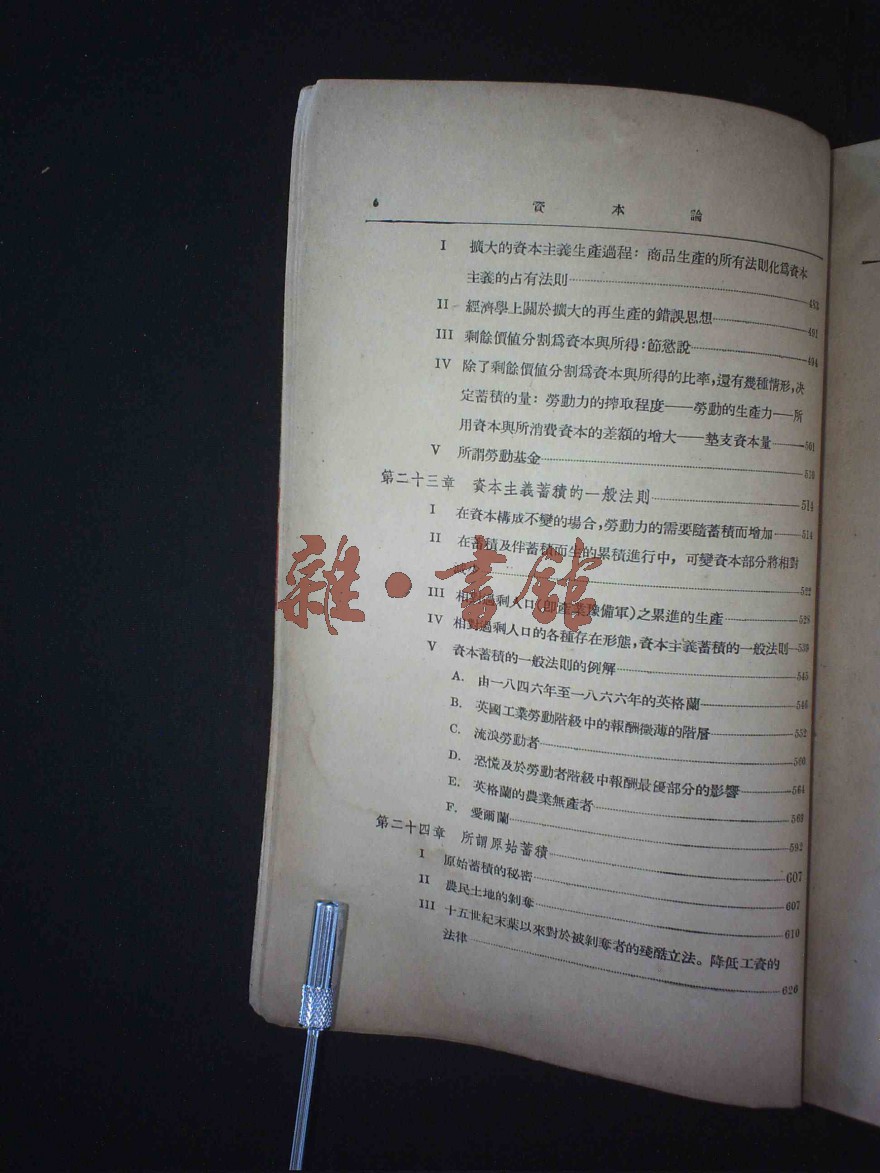 6 資本論
I 擴大的資本主義生產過程：商品生產的所有法則化爲資本
主義的占有法則 483
II 經濟學上關於擴大的再生產的錯誤思想 491
III 剩餘價値分割爲資本與所得：節慾說 494
IV 除了剩餘價値分割爲資本與所得的比率，還有幾種情形，决
定蓄積的量：勞動力的搾取程度——勞動的生產力——所
用資本與所消費資本的差額的增大——墊支資本量 501
V 所謂勞動基金 510
第二十三章 資本主義蓄積的一般法則 514
I 在資本構成不變的場合，勞動力的需要隨蓄積而增加 514
II 在蓄積及伴蓄積而生的累積進行中，可變資本部分將相對
522
III 相對過剩人口（卽產業豫備軍）之累進的生產 528
IV 相對過剩人口的各種存在形態，資本主義蓄積的一般法則 539
V 資本蓄積的一般法則的例解 545
A. 由一八四六年至一八六六年的英格蘭 546
B. 英國工業勞動階級中的報酬微薄的階層 552
C. 流浪勞動者 560
D. 恐慌及於勞動者階級中報酬最優部分的影響 564
E. 英格蘭的農業無產者 569
F. 愛爾蘭 592
第二十四章 所謂原始蓄積 607
I 原始蓄積的秘密 607
II 農民土地的剝奪 610
III 十五世紀末葉以來對於被剝奪者的殘酷立法。降低工資的
法律 626
雜·書館